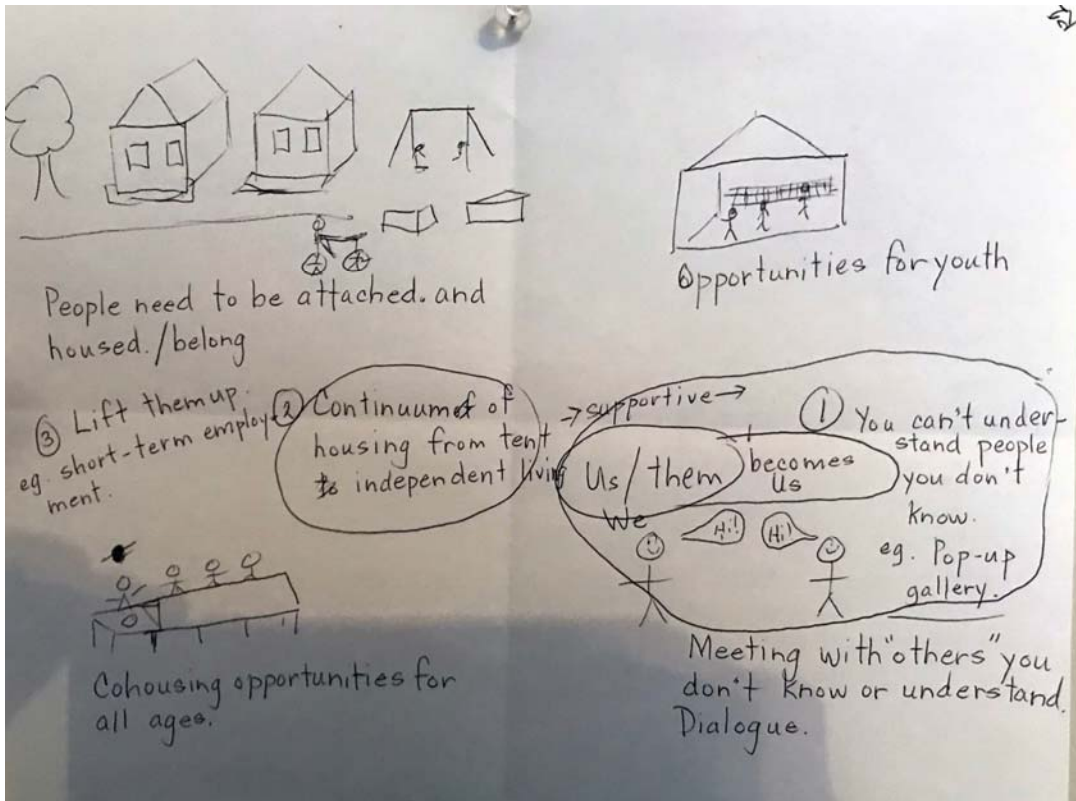 R2
People need to be attached. and
housed./belong
Opportunities for youth
③ Lift them up.
eg. short-term employ-
ment.
② Continuum of
housing from tent
to independent living
→ supportive →
Us/them
becomes
Us
We
Hi!
Hi!
① You can't under-
stand people
you don't
know.
eg. Pop-up
gallery.
Cohousing opportunities for
all ages.
Meeting with "others" you
don't know or understand.
Dialogue.